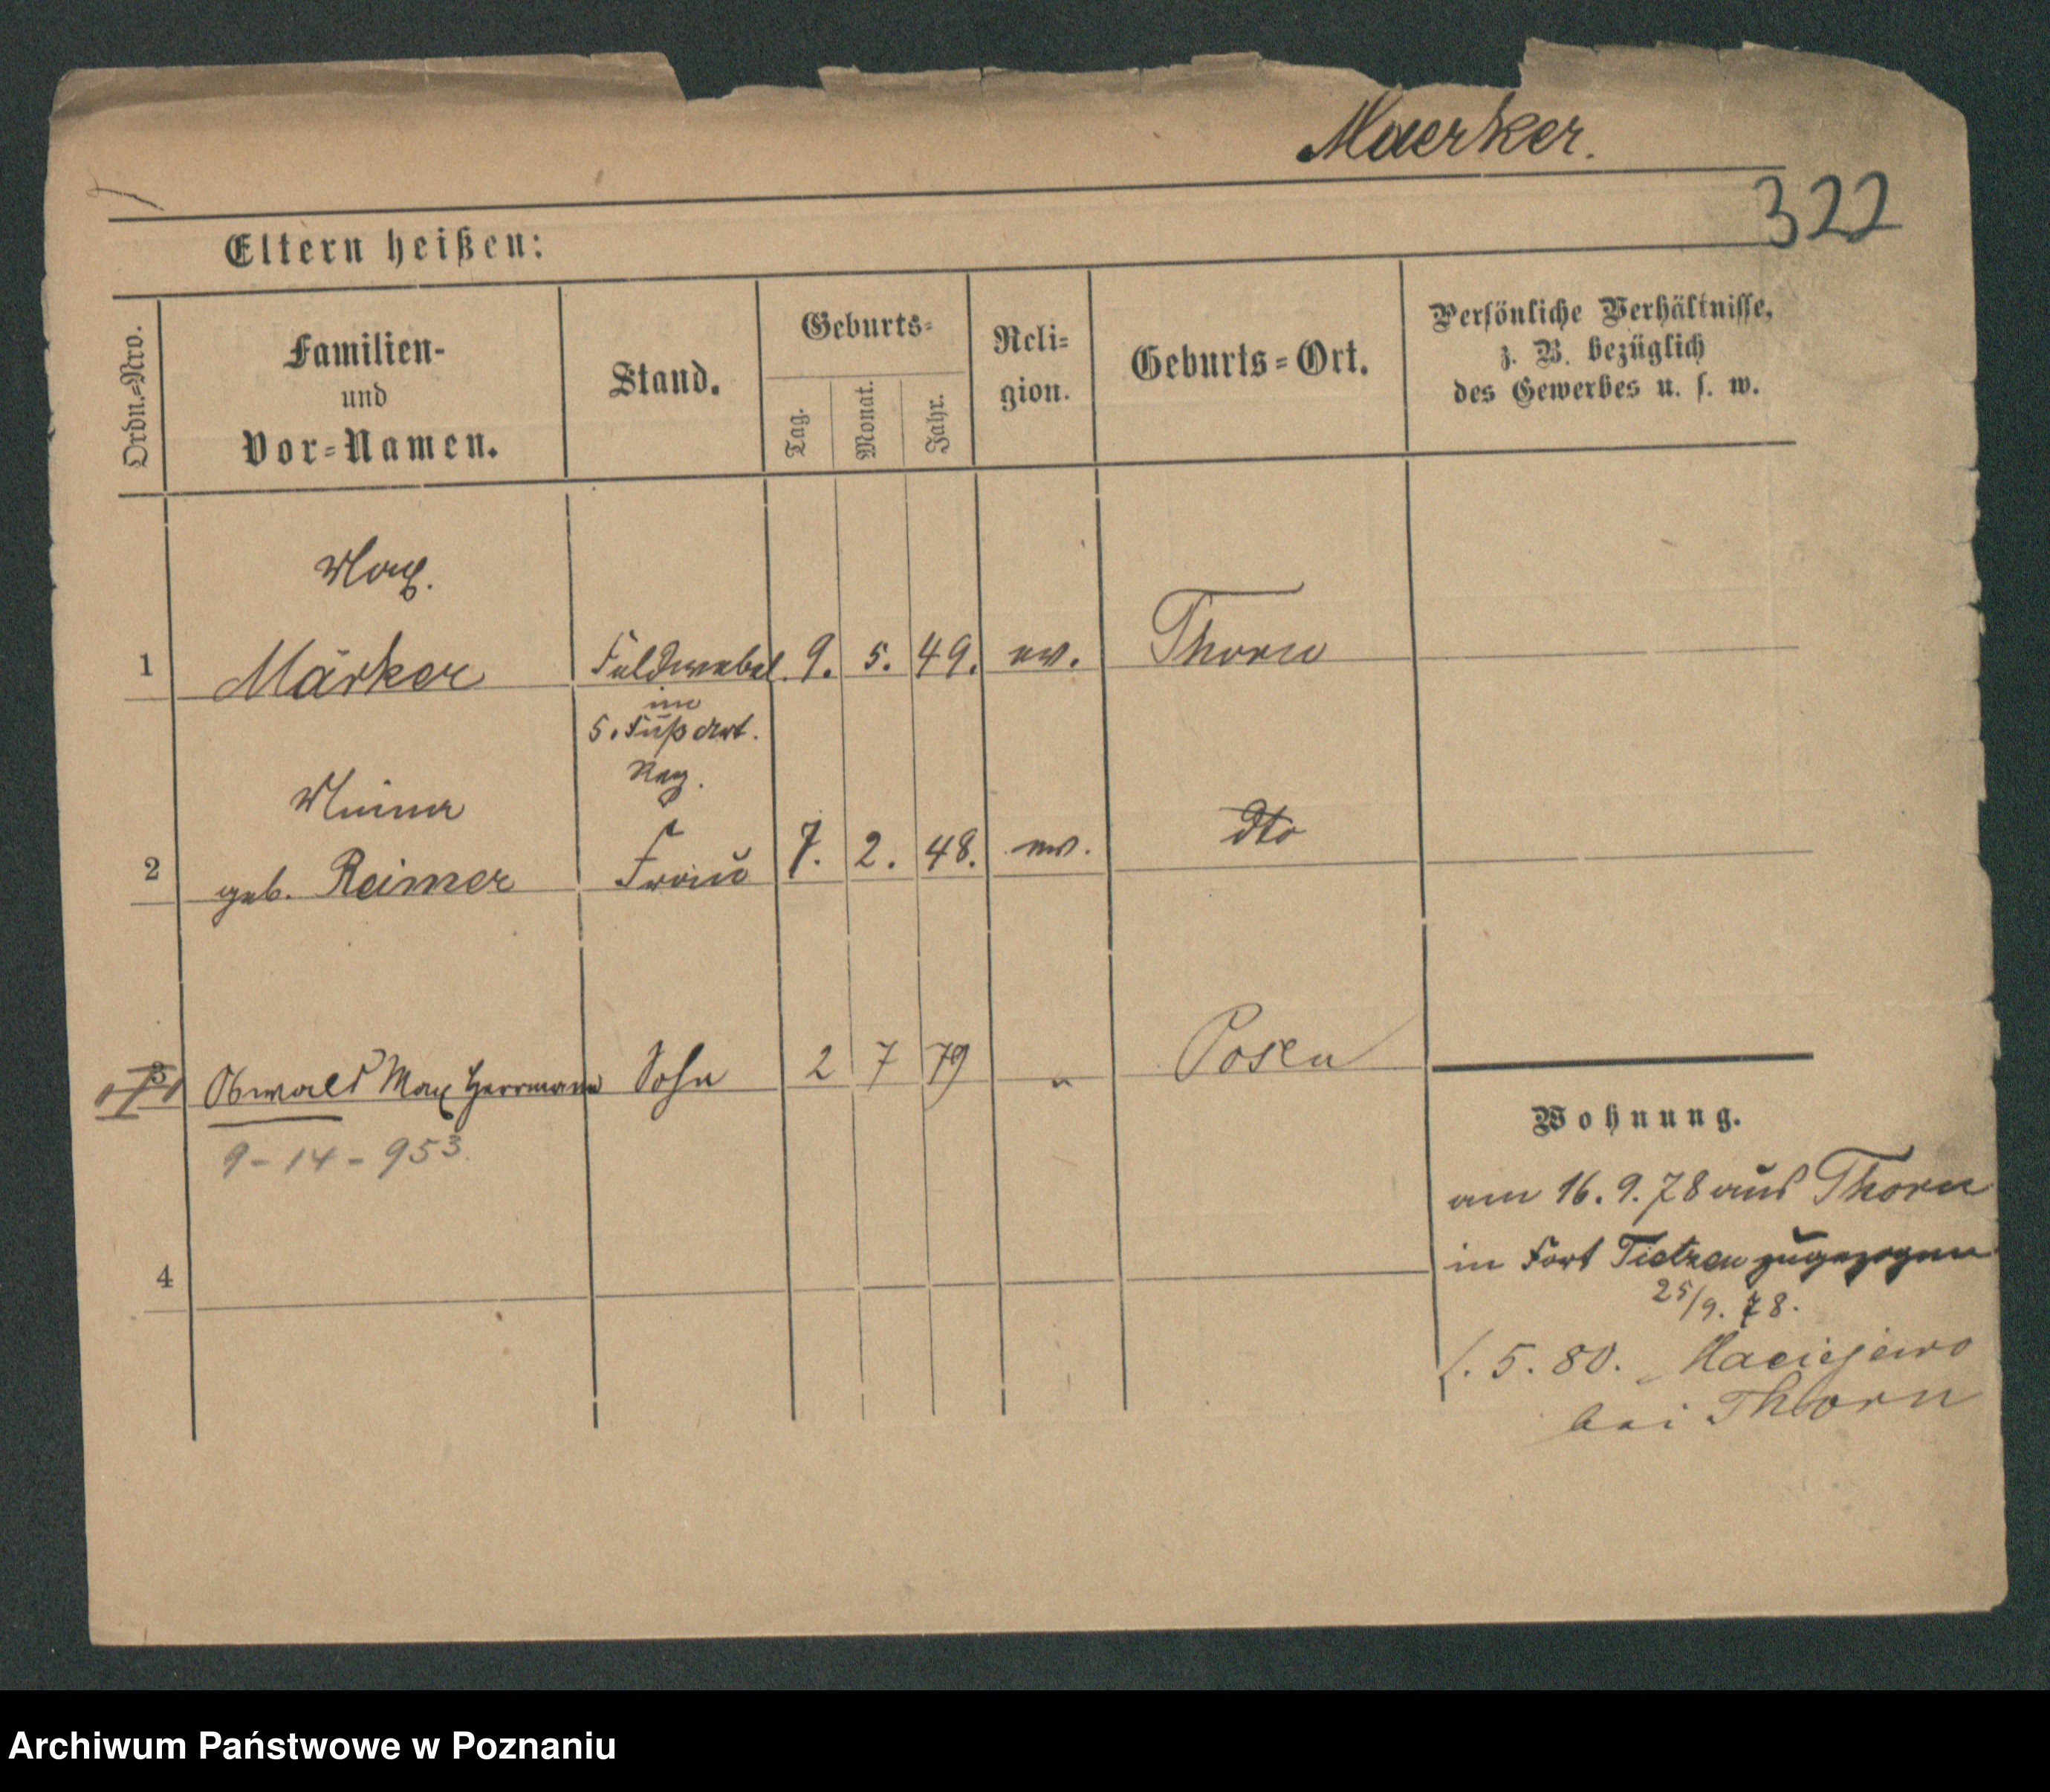 Maerker.
322
Eltern heißen:
Ordn.=Nro.
Familien-
und
Vor=Namen.
Stand.
Geburts=
Tag.
Monat.
Jahr.
Reli=
gion.
Geburts=Ort.
Persönliche Verhältnisse,
z. B. bezüglich
des Gewerbes u. s. w.
Max.
1 Märker Feldwebel 9. 5. 49. ev. Thorn
im
5. Fuß Art.
Reg.
Minna
2 geb. Reimer Frau 7. 2. 48. ev. dto
3 Oswald Max Herrmann Sohn 2 7 79 " Posen
9-14-953.
4
Wohnung.
am 16. 9. 78 aus Thorn
in Fort Tietzen zugezogen
25/9. 78.
1. 5. 80. Maciejewo
bei Thorn
Archiwum Państwowe w Poznaniu